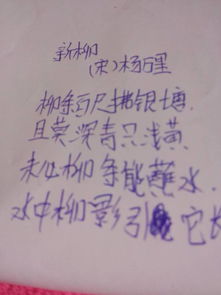 新柳
(宋)杨万里
柳条百尺拂银塘
且莫深青只浅黄
未必柳条能蘸水
水中柳影引它长